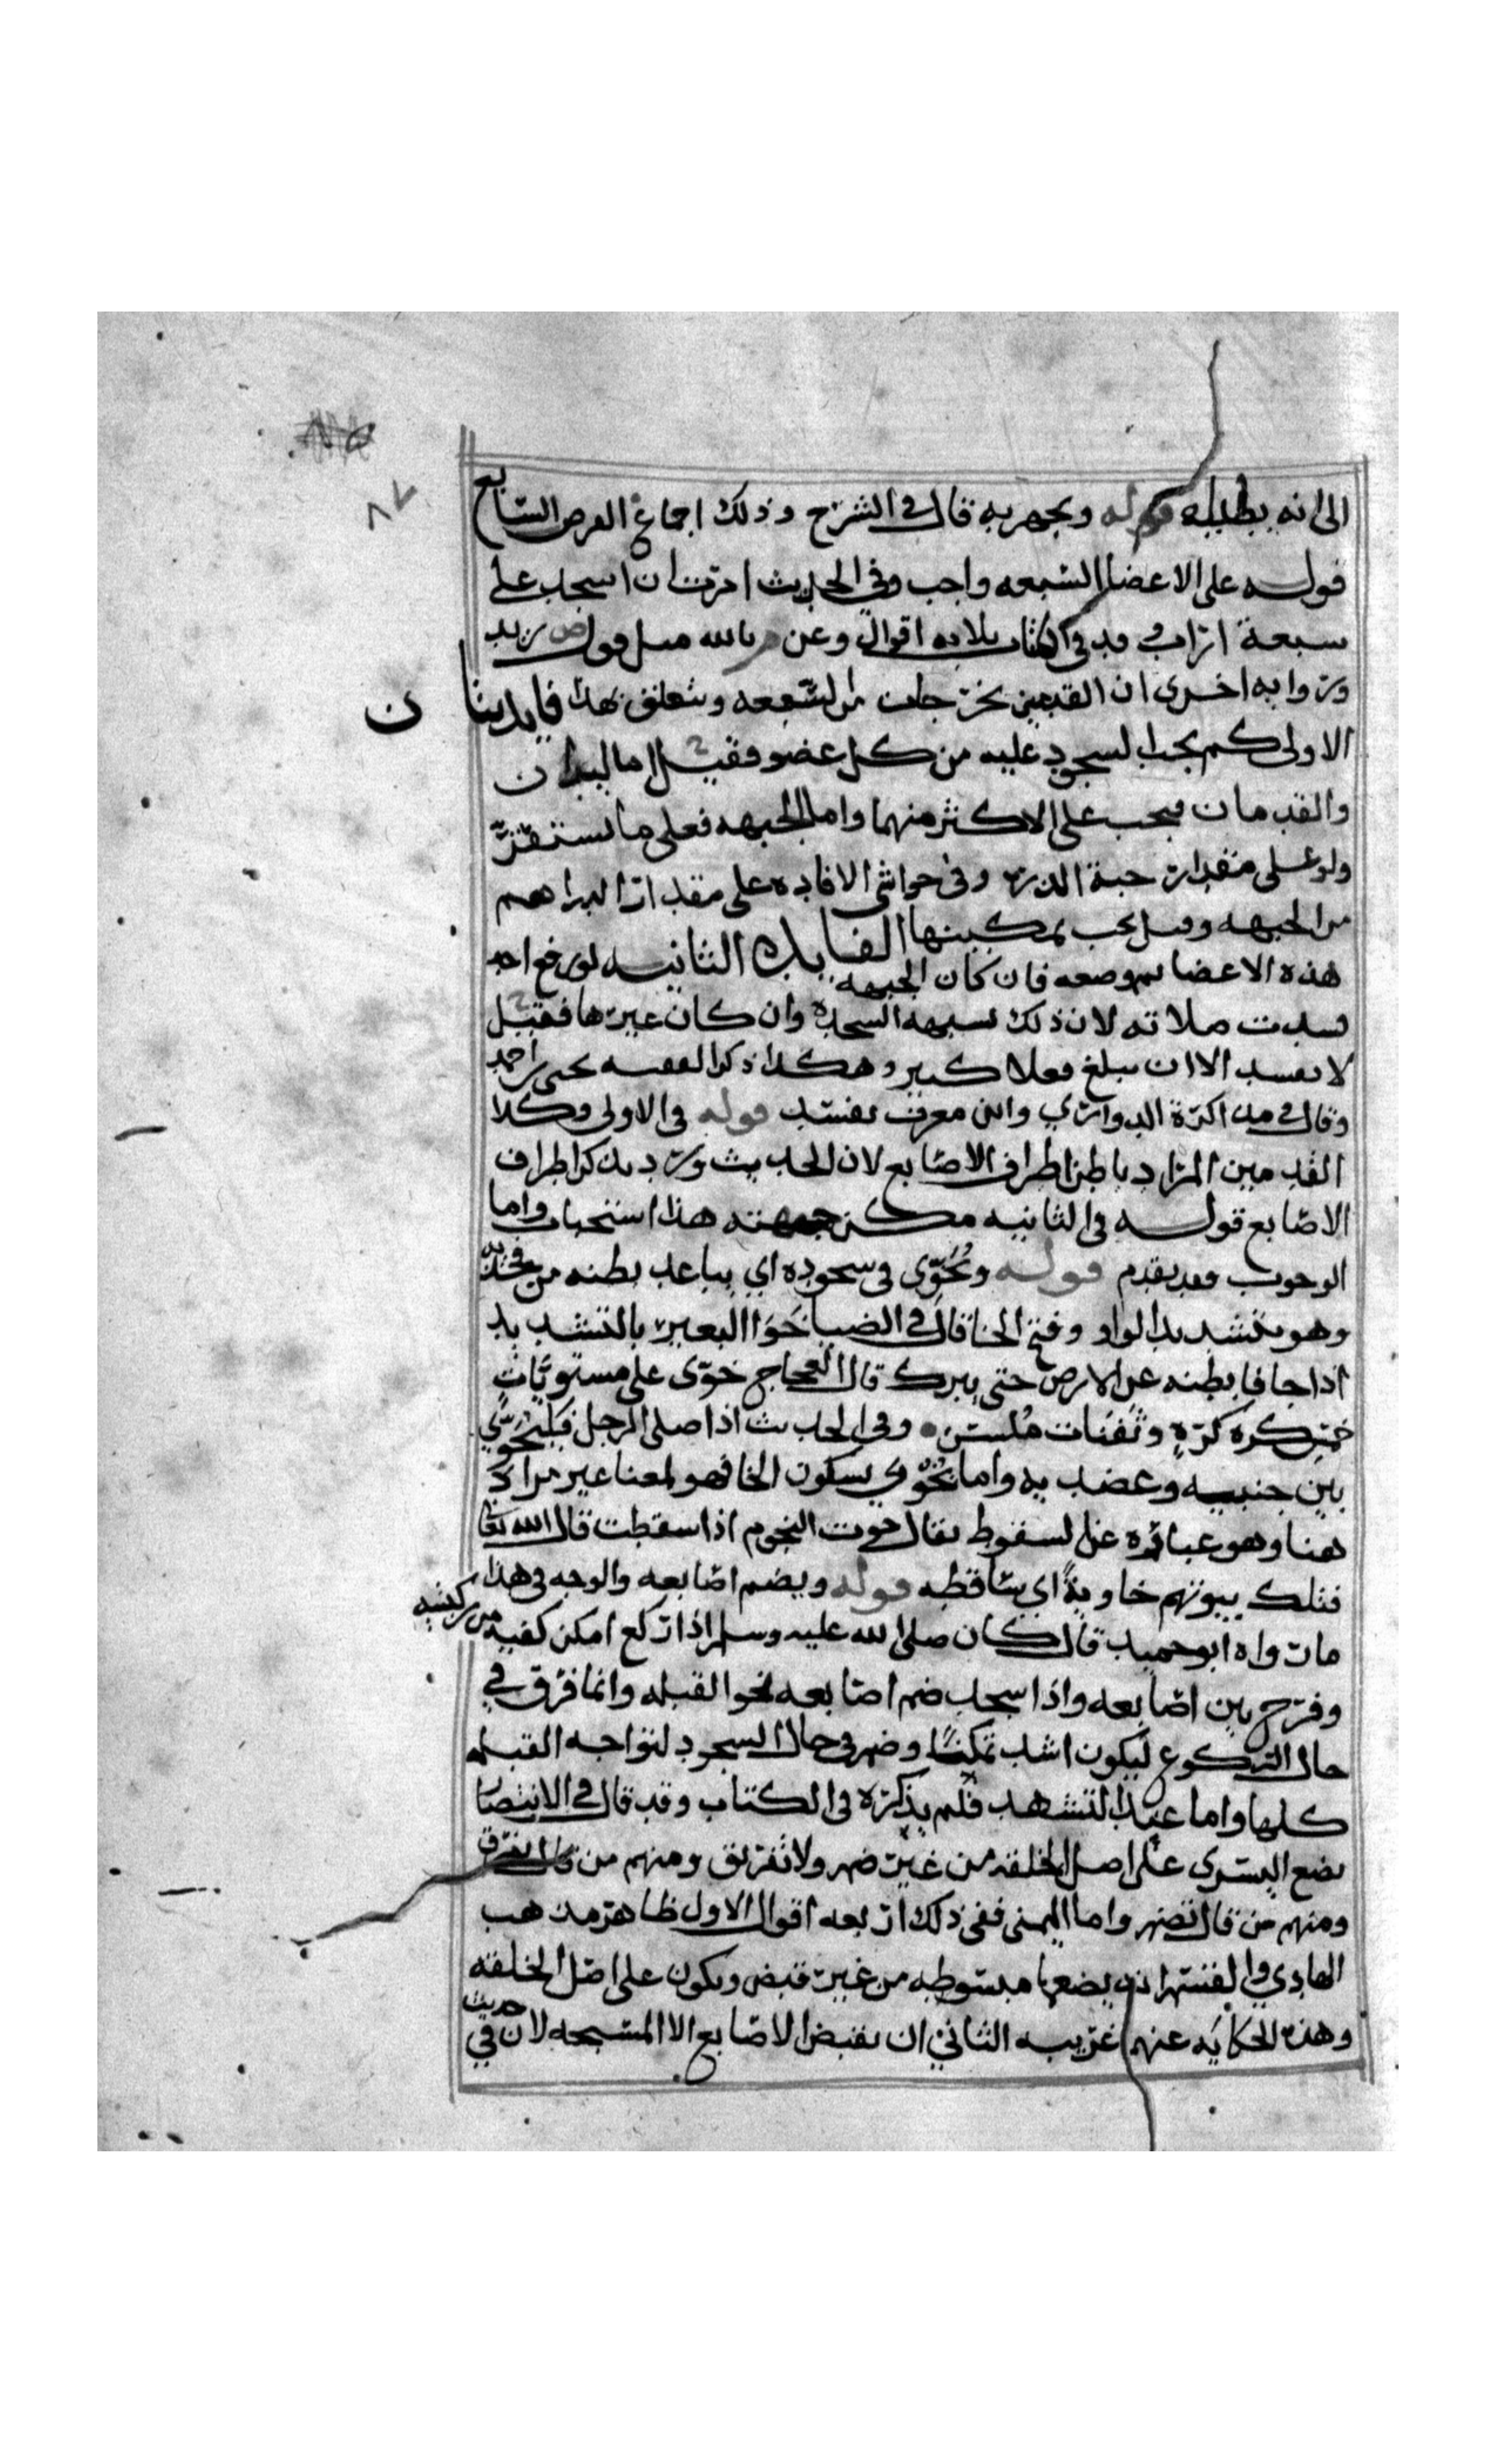 ٨٧
الى انه يطلبله قوله ويجهر به قال في الشرح وذلك اجماع الفرض السابع
قوله على الاعضا السبعه واجب وفي الحديث امرت ان اسجد على
سبعة اراب وقد في الكتاب ثلاثه اقوال وعن م بالله مثل قول زيد
وروايه اخرى ان القدمين يخرجان من السبعه وتعلق بهذا فايدتان
الاولى كم يجب السجود عليه من كل عضو فقيل اما اليدان
والقدمان فيجب على الاكثر منهما واما الجبهه فعلى ما تستقر
ولو على مقدار حبة الذره وفي حواشي الافاده على مقدار الدراهم
من الجبهه وقيل يجب تمكينها الفايدة الثانيه لو رفع احد
هذه الاعضا ثم وضعه فان كان الجبهه
فسدت صلاته لان ذلك يشبه السجده وان كان غيرها فقيل
لا تفسد الا ان يبلغ فعلا كثيرا وهكذا ذكر الفقيه يحيى بن احمد
وقال في مذاكرة الدواري وابن معرف تفسد قوله في الاولى وكذا
القدمين المراد باطن اطراف الاصابع لان الحديث ورد بذكر اطراف
الاصابع قوله في الثانيه مكن جبهته هذا استحباب واما
الوجوب فقد تقدم قوله ويخوي في سجوده اي يباعد بطنه من فخذيه
وهو بتشديد الواو وفتح الخا قال في الضيا خوا البعير بالتشديد
اذا جافا بطنه عن الارض حتى يبرك قال العجاج خوى على مستويات
خمس كركرة وثفنات ملس وفي الحديث اذا صلى الرجل فليخوي
بين جنبيه وعضديه واما يخوي بسكون الخا فهو لمعنا غير مراد
هنا وهو عباره عن السقوط يقال خوت النجوم اذا سقطت قال الله تعالى
فتلك بيوتهم خاوية اي ساقطه قوله ويضم اصابعه والوجه في هذا
ما رواه ابو حميد قال كان صلى الله عليه وسلم اذا ركع امكن كفيه من ركبتيه
وفرج بين اصابعه واذا سجد ضم اصابعه نحو القبله وانما فرق في
حال الركوع ليكون اشد تمكنا وضم في حال السجود لتواجه القبله
كلها واما عند التشهد فلم يذكره في الكتاب وقد قال في الانتصار
يضع اليسرى على اصل الخلقه من غير ضم ولا تفريق ومنهم من قال يفرق
ومنهم من قال تضم واما اليمنى ففي ذلك اربعه اقوال الاول ظاهر مذهب
الهادي والقسم انه يضعها مبسوطه من غير قبض ويكون على اصل الخلقه
وهذه الحكايه عنهم غريبه الثاني ان يقبض الاصابع الا المسبحه لان في حديث